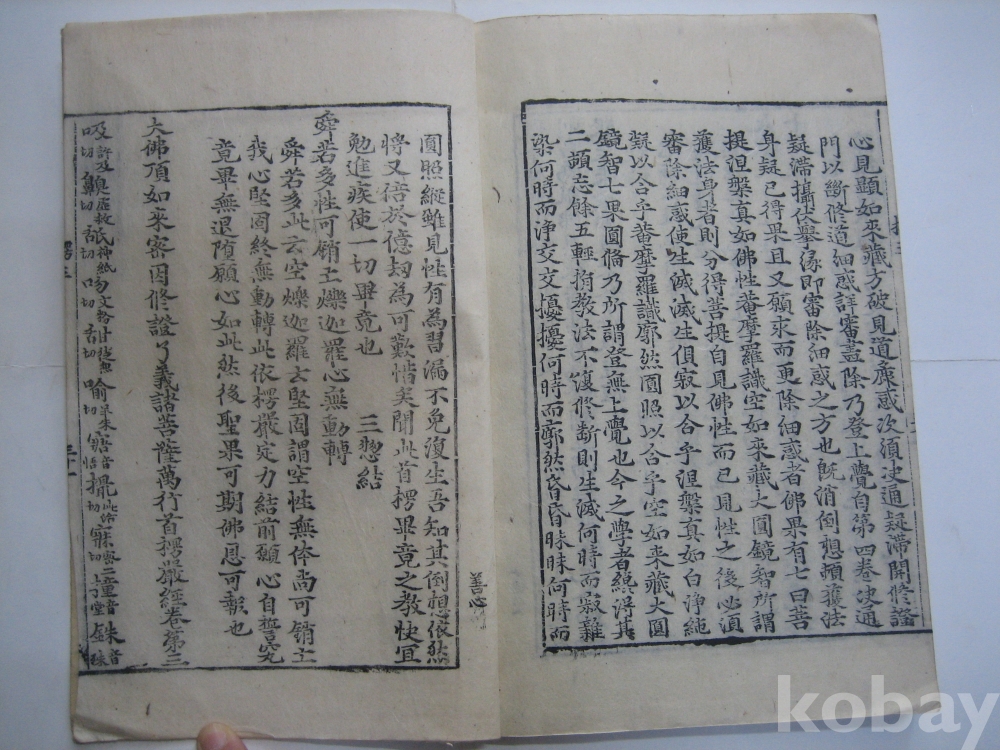 心見顯如來藏方破見道麁惑次須決通疑滯開修證
門以斷修道細惑詳審盡除乃登上覺自第四卷決通
疑滯攝伏攀緣即審除細惑之方也旣消倒想頓獲法
身疑已得果且又願求而更除細惑者佛果有七曰菩
提涅槃真如佛性菴摩羅識空如來藏大圓鏡智所謂
獲法身者則分得菩提自見佛性而已見性之後必須
審除細惑使生滅滅生俱寂以合乎涅槃真如白淨純
凝以合乎菴摩羅識廓然圓照以合乎空如來藏大圓
鏡智七果圓備乃所謂登無上覺也今之學者纔得其
二頓忘餘五輕捐敎法不復修斷則生滅何時而寂雜
染何時而淨交交擾擾何時而廓然昏昏昧昧何時而
善心
圓照縱雖見性有為習漏不免復生吾知其倒想依然
將又倍於億劫為可歎惜矣聞此首楞畢竟之教快宜
勉進疾使一切畢竟也
三揔結
舜若多性可銷亡爍迦羅心無動轉
舜若多此云空爍迦羅云堅固謂空性無体尚可銷亡
我心堅固終無動轉此依楞嚴定力結前願心自誓究
竟畢無退墮願心如此然後聖果可期佛恩可報也
大佛頂如來密因修證了義諸菩薩萬行首楞嚴經卷第三
楞三
三十一
kobay